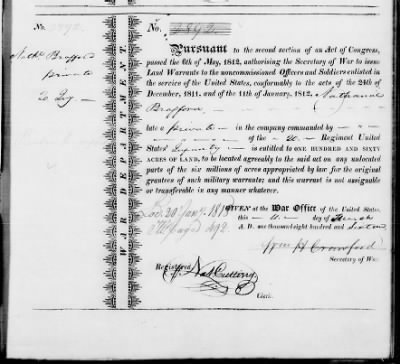 No. 2892.
No. 2892.
Pursuant to the second section of an Act of Congress,
passed the 6th of May, 1812, authorising the Secretary of War to issue
Nath. Brafford
Land Warrants to the noncommissioned Officers and Soldiers enlisted in
private
the service of the United States, conformably to the acts of the 24th of
December, 1811, and of the 11th of January, 1812, Nathanael
Brafford
late a private in the company commanded by
of the 20 Regiment United
States' Infantry is entitled to ONE HUNDRED AND SIXTY
ACRES OF LAND, to be located agreeably to the said act on any unlocated
part of the six millions of acres appropriated by law for the original
grantees of such military warrants; and this warrant is not assignable
or transferable in any manner whatever.
WAR DEPARTMENT.
GIVEN at the War Office of the United States,
Loc. 20 Jany 1818
this 11 day of March
A. D. one thousand eight hundred and sixteen
Wm H Crawford
Secretary of War
Registered
Nat Cutting
Clerk.